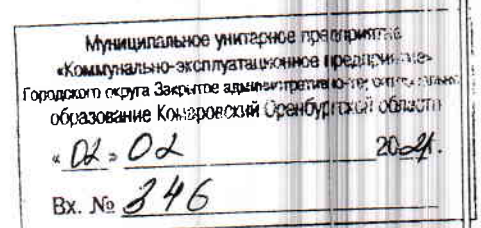 Муниципальное унитарное предприятие
«Коммунально-эксплуатационное предприятие»
Городского округа Закрытое административно-территориальное
образование Комаровский Оренбургской области
« 02 » 02 2021.
Вх. № 346